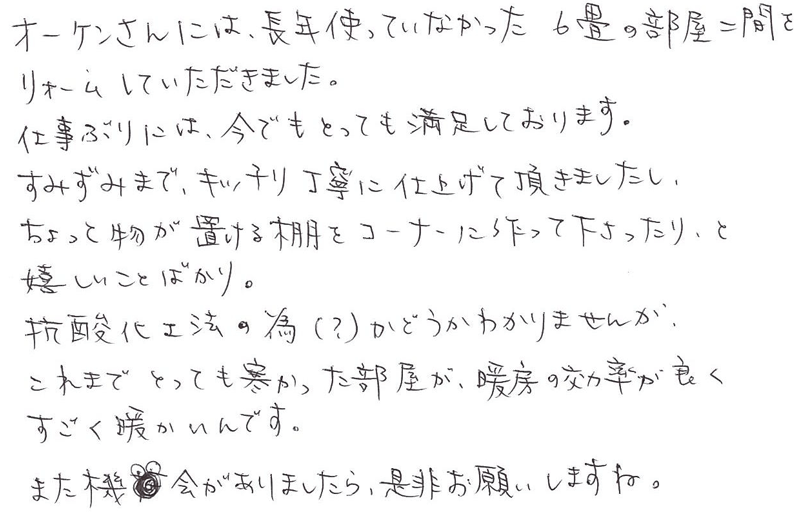 オーケンさんには、長年使っていなかった 6畳の部屋二間を
リォームしていただきました。
仕事ぶりには、今でもとっても満足しております。
すみずみまで、キッチリ丁寧に仕上げて頂きましたし、
ちょっと物が置ける棚をコーナーに作って下さったり、と
嬉しいことばかり。
抗酸化工法の為(?)かどうかわかりませんが、
これまでとっても寒かった部屋が、暖房の効率が良く
すごく暖かいんです。
また機会がありましたら、是非お願いしますね。